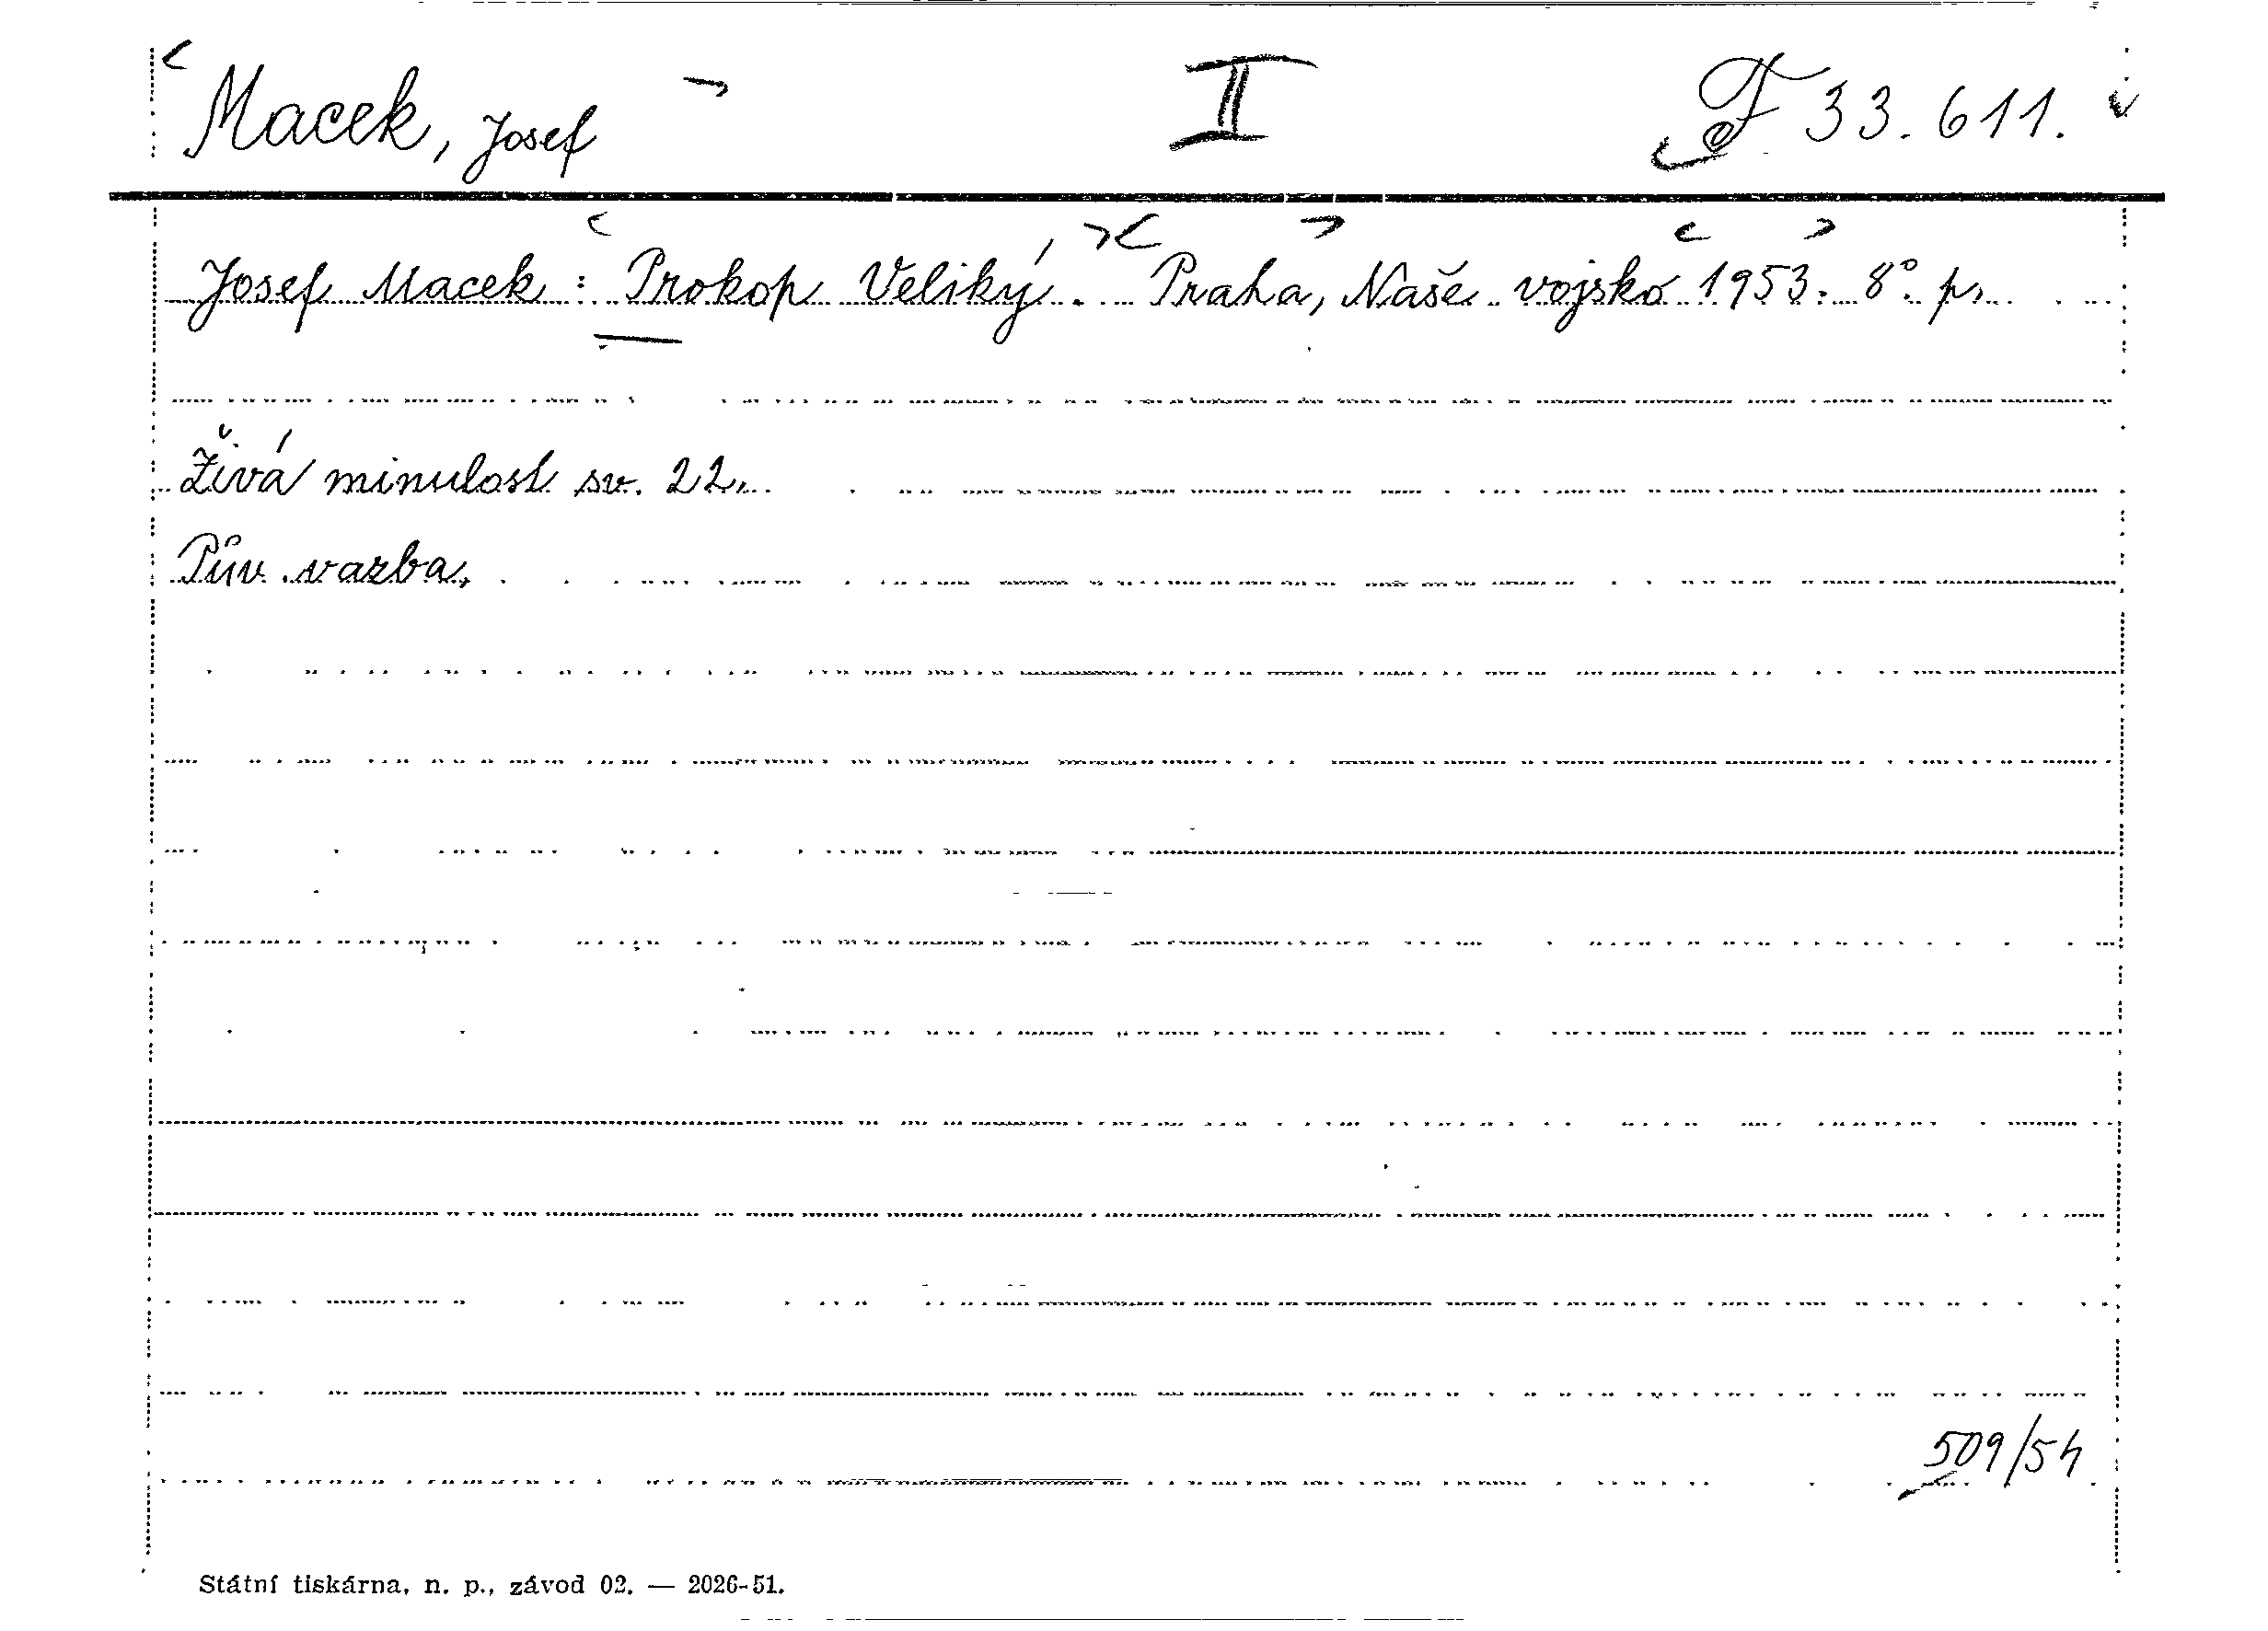 Macek, Josef II F 33.611.
Josef Macek : Prokop Veliký. Praha, Naše vojsko 1953. 8° p.
Živá minulost sv. 22.
Pův. vazba.
509/54
Státní tiskárna, n. p., závod 02. — 2026-51.